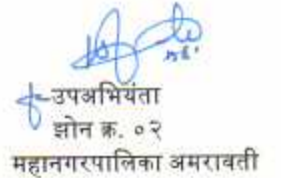 उपअभियंता
झोन क्र. ०२
महानगरपालिका अमरावती